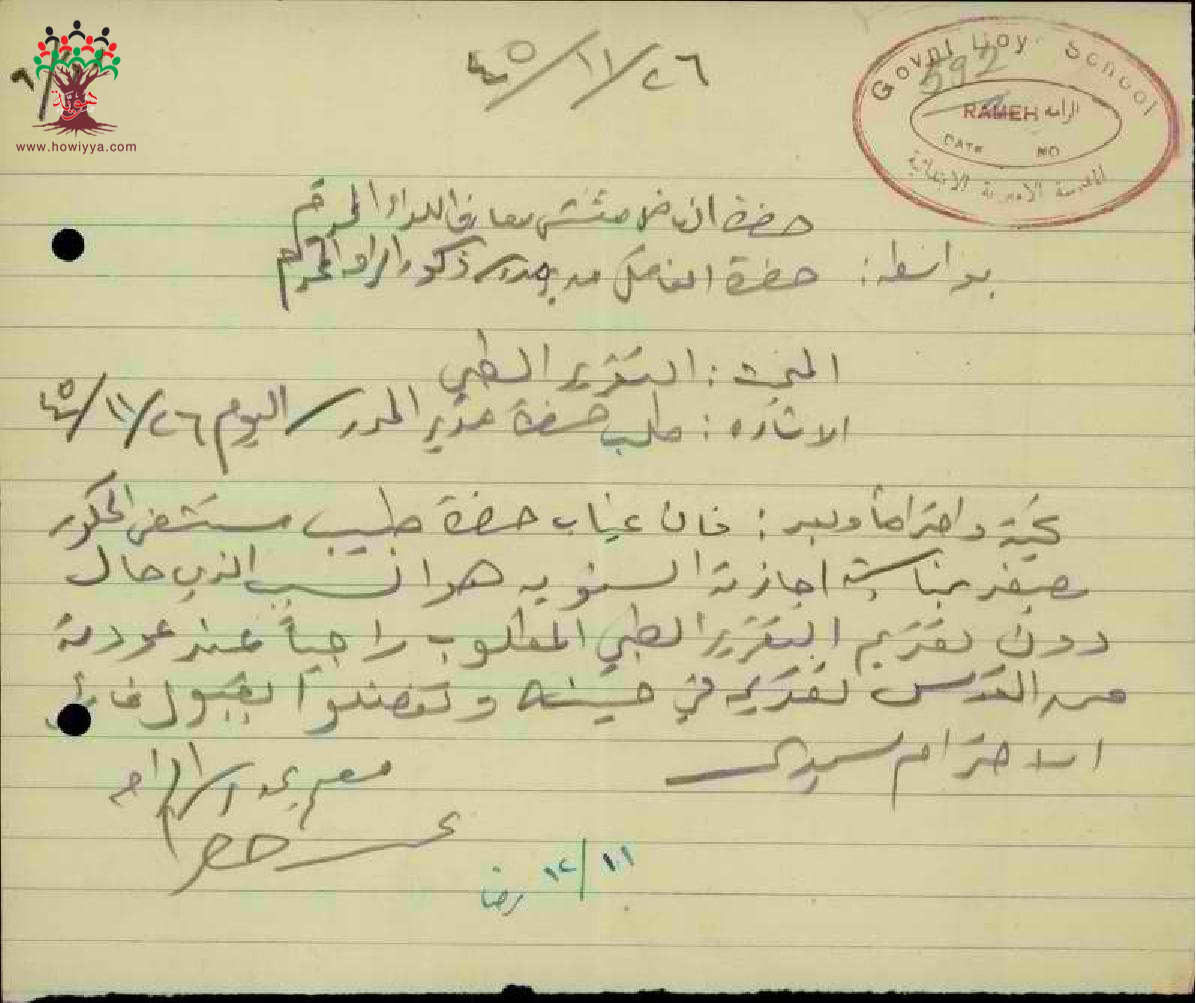 هوية
www.howiyya.com
٤٥/١١/٢٦
Govnt Boy School
592
RAMEH الرامه
DATE NO
المدرسة الاميرية الابتدائية
حضرة الفاضل مفتش معارف اللواء المحترم
بواسطة: حضرة الفاضل مدير مدرسة ذكور الرامه المحترم
المبحث: التقرير الطبي
الاشاره: طلب حضرة مدير المدرسة اليوم ٤٥/١١/٢٦
تحية واحتراما وبعد: فان غياب حضرة طبيب مستشفى الحكومة
بصفد بمناسبة اجازته السنويه هو السبب الذي حال
دون تقديم التقرير الطبي المطلوب راجياً عند عودته
من القدس تقديمه في حينه وتفضلوا بقبول فائق
الاحترام سيدي
معلم بمدرسة الرامه
١٢/١١
رضا